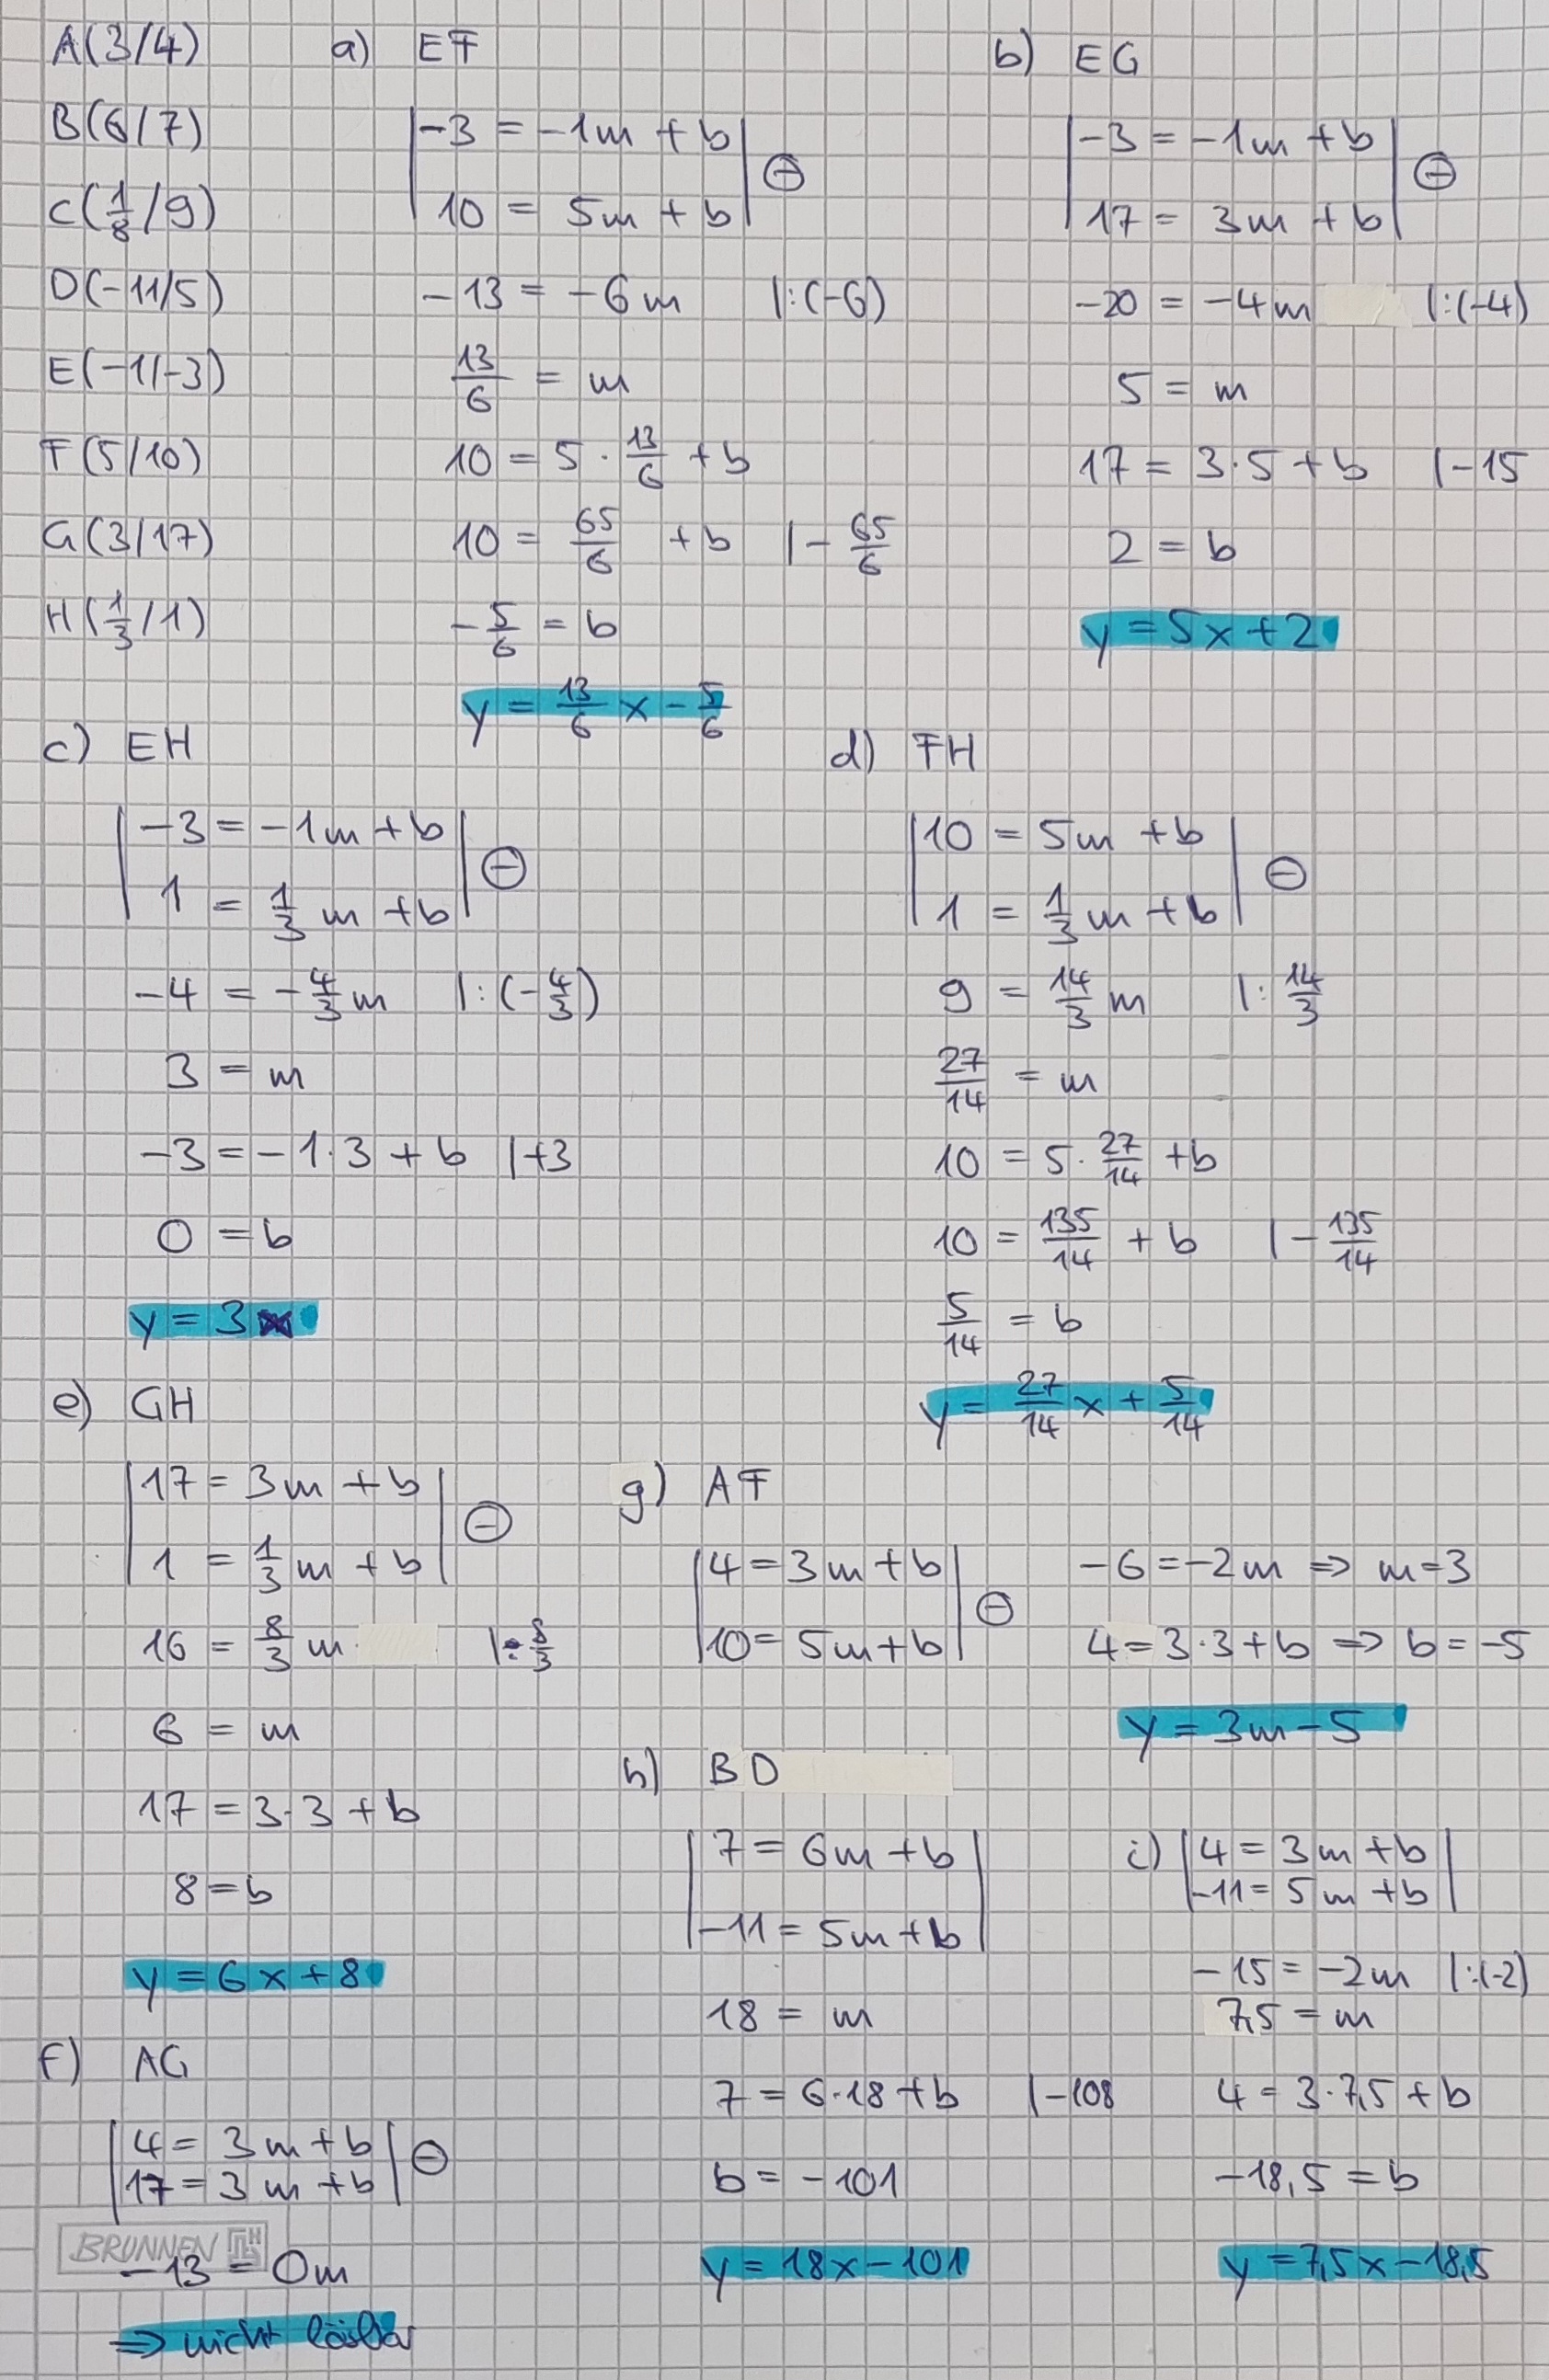 A(3/4)
B(6/7)
C(1/8 / 9)
D(-11/5)
E(-1/-3)
F(5/10)
G(3/17)
H(1/3 / 1)
a) EF
|-3 = -1m + b| ⊖
|10 = 5m + b|
-13 = -6m |:(-6)
13/6 = m
10 = 5 · 13/6 + b
10 = 65/6 + b |- 65/6
- 5/6 = b
y = 13/6 x - 5/6
b) EG
|-3 = -1m + b| ⊖
|17 = 3m + b|
-20 = -4m |:(-4)
5 = m
17 = 3·5 + b |-15
2 = b
y = 5x + 2
c) EH
|-3 = -1m + b| ⊖
|1 = 1/3 m + b|
-4 = - 4/3 m |:(- 4/3)
3 = m
-3 = -1·3 + b |+3
0 = b
y = 3x
d) FH
|10 = 5m + b| ⊖
|1 = 1/3 m + b|
9 = 14/3 m |: 14/3
27/14 = m
10 = 5 · 27/14 + b
10 = 135/14 + b |- 135/14
5/14 = b
y = 27/14 x + 5/14
e) GH
|17 = 3m + b| ⊖
|1 = 1/3 m + b|
16 = 8/3 m |: 8/3
6 = m
17 = 3·3 + b
8 = b
y = 6x + 8
f) AG
|4 = 3m + b| ⊖
|17 = 3m + b|
BRUNNEN
-13 = 0m
⇒ nicht lösbar
g) AF
|4 = 3m + b| ⊖
|10 = 5m + b|
-6 = -2m ⇒ m = 3
4 = 3·3 + b ⇒ b = -5
y = 3m - 5
h) BD
|7 = 6m + b|
|-11 = 5m + b|
18 = m
7 = 6·18 + b |-108
b = -101
y = 18x - 101
i) |4 = 3m + b|
|-11 = 5m + b|
-15 = -2m |:(-2)
7,5 = m
4 = 3·7,5 + b
-18,5 = b
y = 7,5x - 18,5